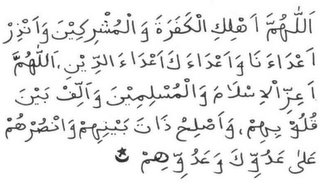 اَللّٰهُمَّ اَهْلِكِ الْكَفَرَةَ وَالْمُشْرِكِيْنَ وَانْذِرْ
اَعْدَاءَ نَا وَاَعْدَاءَ كَ اَعْدَاءَ الدِّيْنِ، اَللّٰهُمَّ
اَعِزِّ الْاِسْلَامَ وَالْمُسْلِمِيْنَ وَاَلِّفْ بَيْنَ
قُلُوْبِهِمْ، وَاَصْلِحْ ذَاتَ بَيْنِهِمْ وَانْصُرْهُمْ
عَلىٰ عَدُوِّكَ وَعَدُوِّهِمْ